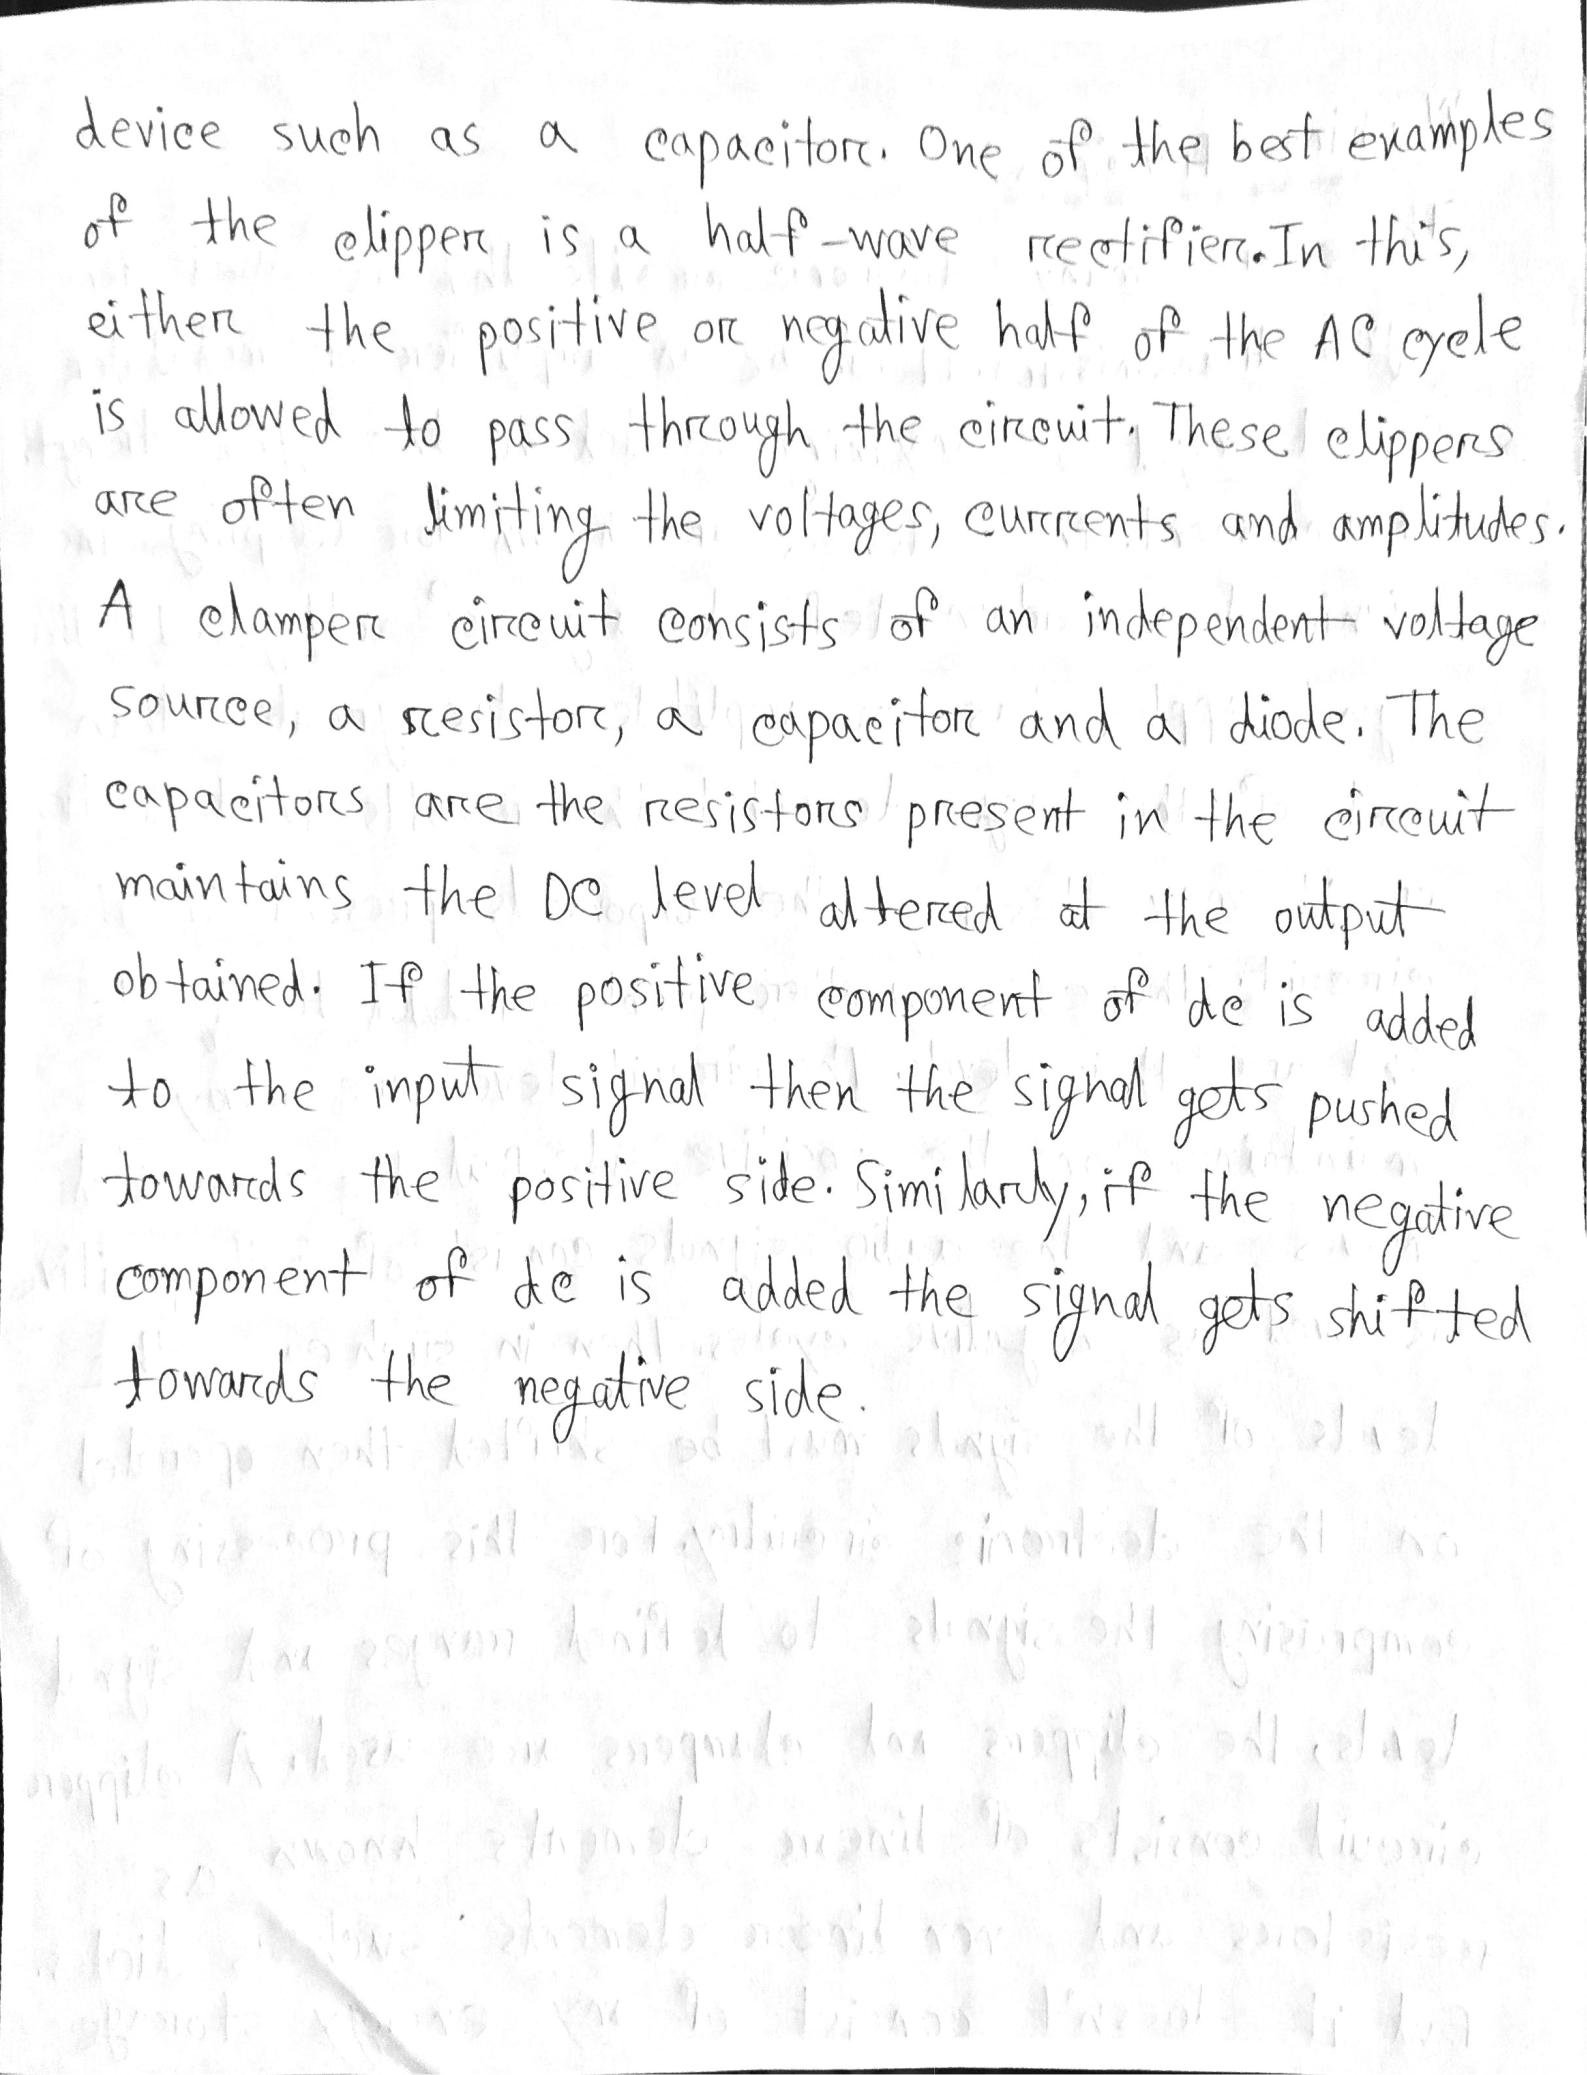 device such as a capacitor. One of the best examples
of the clipper is a half-wave rectifier. In this,
either the positive or negative half of the AC cycle
is allowed to pass through the circuit. These clippers
are often limiting the voltages, currents and amplitudes.
A clamper circuit consists of an independent voltage
source, a resistor, a capacitor and a diode. The
capacitors are the resistors present in the circuit
maintains the DC level altered at the output
obtained. If the positive component of dc is added
to the input signal then the signal gets pushed
towards the positive side. Similarly, if the negative
component of dc is added the signal gets shifted
towards the negative side.